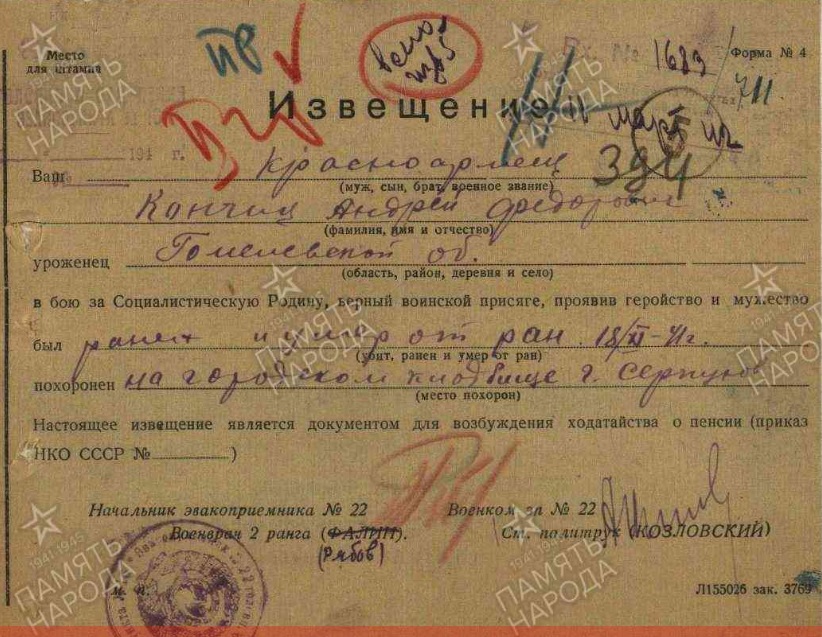 Место
для штампа
ПВ
Вх. №
1683
Форма № 4
711
Извещение
11 март 42
394
194 г.
Ваш Красноармеец
(муж, сын, брат, военное звание)
Кончиц Андрей Федорович
(фамилия, имя и отчество)
уроженец Гомелевской об.
(область, район, деревня и село)
в бою за Социалистическую Родину, верный воинской присяге, проявив геройство и мужество
был ранен и умер от ран 18/XI-41г.
(убит, ранен и умер от ран)
похоронен на городском кладбище г. Серпухов
(место похорон)
Настоящее извещение является документом для возбуждения ходатайства о пенсии (приказ
НКО СССР № )
Начальник эвакоприемника № 22
Военком эп № 22
Военврач 2 ранга (ФАЛИН).
Ст. политрук (КОЗЛОВСКИЙ)
(Рябов)
М. П.
Л155026 зак. 3769
ПАМЯТЬ
НАРОДА
1941-1945